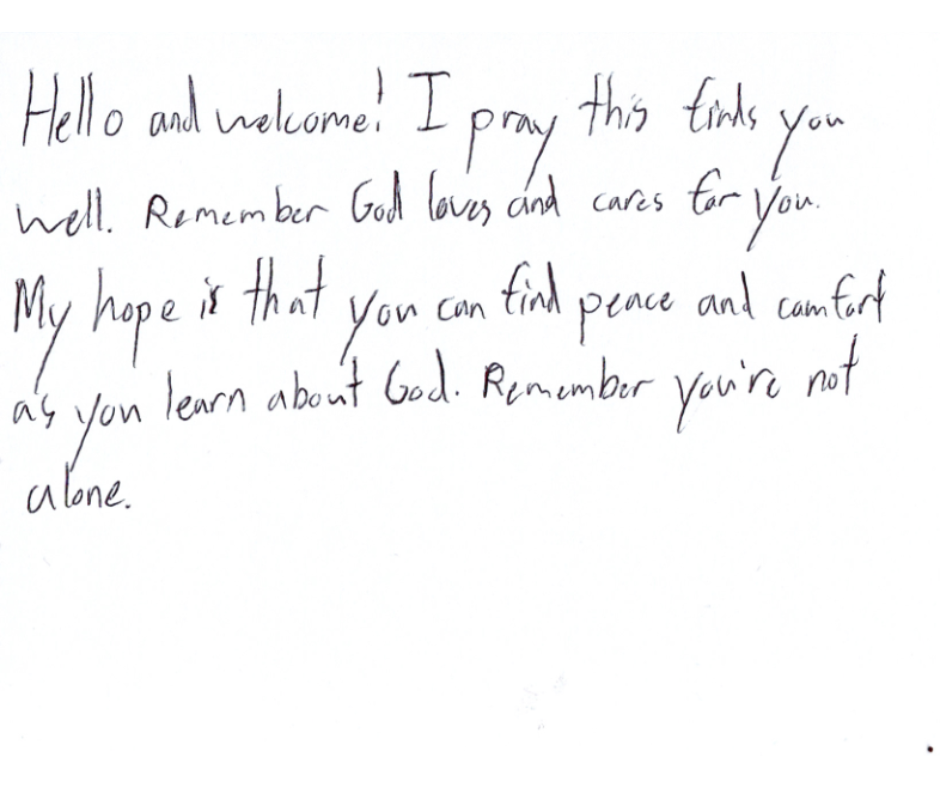 Hello and welcome! I pray this finds you
well. Remember God loves and cares for you.
My hope is that you can find peace and comfort
as you learn about God. Remember you're not
alone.